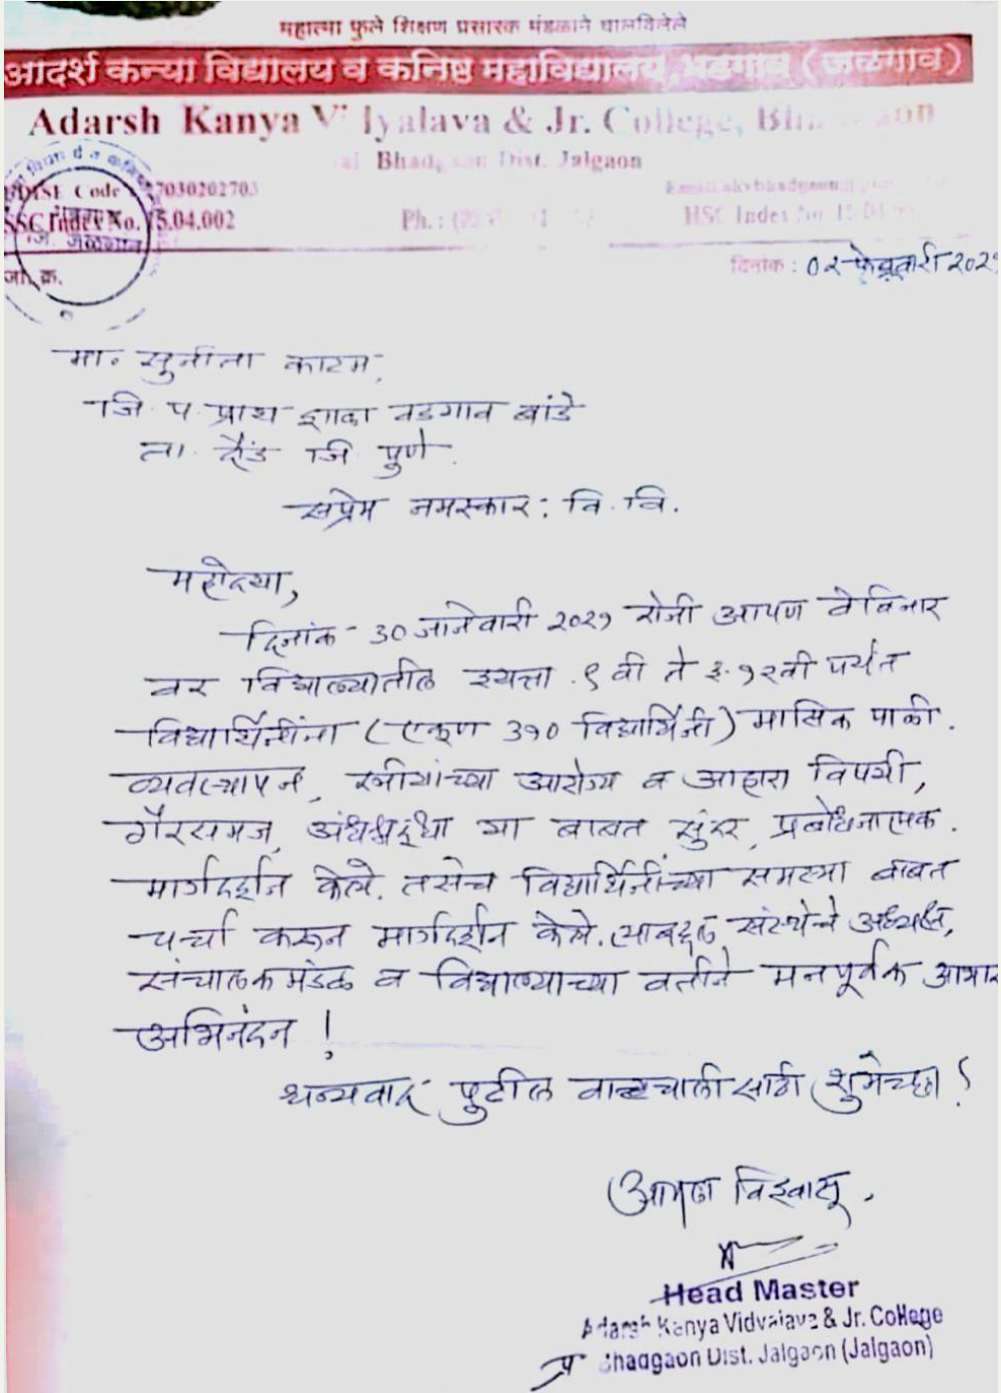 महात्मा फुले शिक्षण प्रसारक मंडळाने चालविलेले
आदर्श कन्या विद्यालय व कनिष्ठ महाविद्यालय, भडगाव (जळगाव)
Adarsh Kanya & Jr. College,
Dist. Jalgaon
UDISE Code 27030202703
SSC Index No. 15.04.002
Ph. :
HSC Index No.
जि. जळगाव
जा. क्र.
दिनांक : ०२ फेब्रुवारी २०२१
मा. सुनीता काटम,
जि. प. प्राथ शाळा वडगाव बांडे
ता. दौंड जि पुणे.
सप्रेम नमस्कार : वि. वि.
महोदया,
दिनांक - 30 जानेवारी २०२१ रोजी आपण वेबिनार
वर विद्यालयातील इयत्ता ९ वी ते इ. १२वी पर्यंत
विद्यार्थिनींना (एकूण ३१० विद्यार्थिनी) मासिक पाळी.
व्यवस्थापन, स्त्रीयांच्या आरोग्य व आहारा विषयी,
गैरसमज, अंधश्रद्धा या बाबत सुंदर, प्रबोधनात्मक.
मार्गदर्शन केले. तसेच विद्यार्थिनींच्या समस्या बाबत
चर्चा करून मार्गदर्शन केले. त्याबद्दल संस्थेचे अध्यक्ष,
संचालक मंडळ व विद्यालयाच्या वतीने मनपूर्वक आभार
अभिनंदन !
धन्यवाद पुढील वाटचाली साठी शुभेच्छा !
आपला विश्वासू.
Head Master
Adarsh Kanya Vidyalaya & Jr. College
Bhadgaon Dist. Jalgaon (Jalgaon)